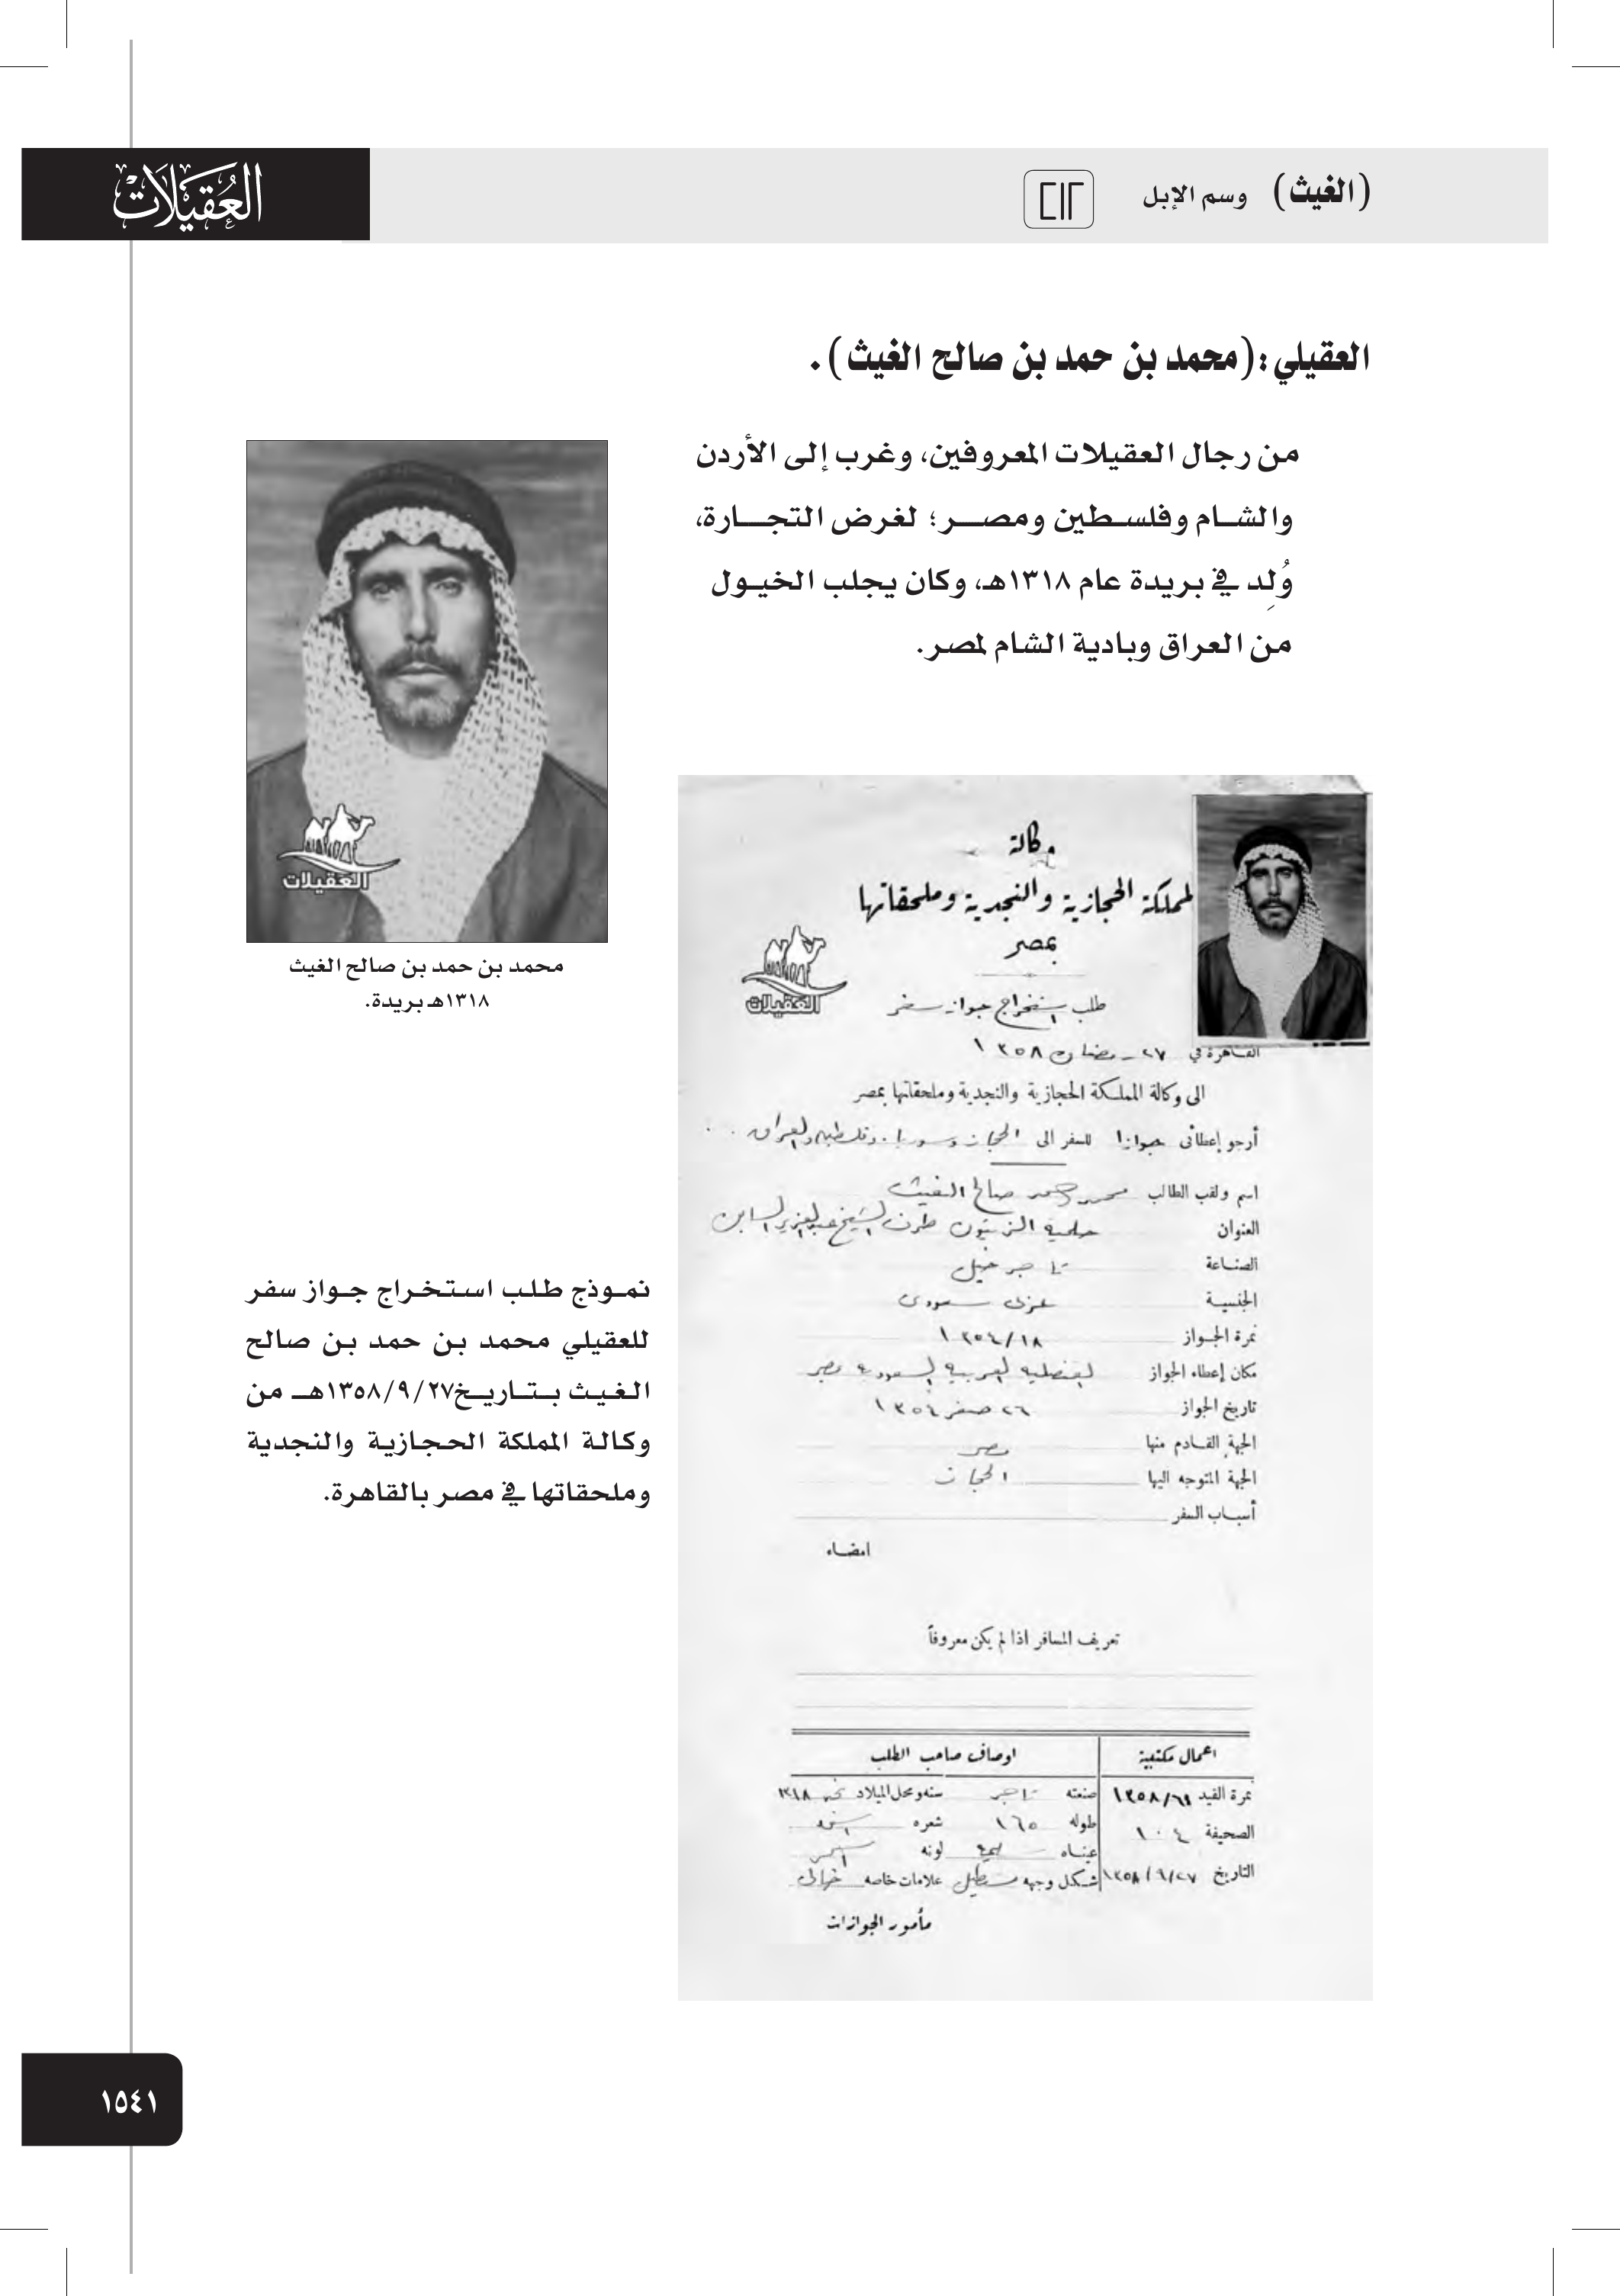 (الغيث) وسم الإبل
العقيلات
العقيلي: (محمد بن حمد بن صالح الغيث).
من رجال العقيلات المعروفين، وغرب إلى الأردن
والشام وفلسطين ومصر؛ لغرض التجارة،
وُلِد في بريدة عام ١٣١٨هـ، وكان يجلب الخيول
من العراق وبادية الشام لمصر.
العقيلات
محمد بن حمد بن صالح الغيث
١٣١٨هـ بريدة.
وكالة
لمملكة الحجازية والنجدية وملحقاتها
بمصر
العقيلات
طلب استخراج جواز سفر
القاهرة في ٢٧ رمضان ١٣٥٨
الى وكالة المملكة الحجازية والنجدية وملحقاتها بمصر
أرجو إعطائى جوازا للسفر الى الحجاز وسوريا وفلسطين والعراق
اسم ولقب الطالب محمد حمد صالح الغيث
العنوان حلمية الزيتون طرف الشيخ عبدالعزيز
الصناعة تاجر خيل
الجنسية سعودى
نمرة الجواز ١٣٥٤/١٨
مكان إعطاء الجواز القنصلية العربية السعودية بمصر
تاريخ الجواز ٢٦ صفر ١٣٥٤
الجهة القادم منها مصر
الجهة المتوجه اليها الحجاز
أسباب السفر
امضاء
تعريف المسافر اذا لم يكن معروفاً
اعمال مكتبية اوصاف صاحب الطلب
نمرة القيد ١٣٥٨/٦١ صنعته تاجر سنه ومحل الميلاد ١٣١٨
الصحيفة ١٠٤ طوله ١٦٥ شعره
عيناه لونه اسمر
التاريخ ١٣٥٨/٩/٢٧ شكل وجهه مستطيل علامات خاصه
مأمور الجوازات
نموذج طلب استخراج جواز سفر
للعقيلي محمد بن حمد بن صالح
الغيث بتاريخ ١٣٥٨/٩/٢٧هـ من
وكالة المملكة الحجازية والنجدية
وملحقاتها في مصر بالقاهرة.
١٥٤١